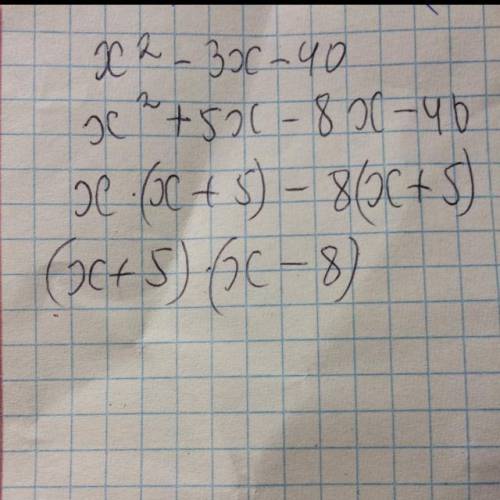 x² - 3x - 40
x² + 5x - 8x - 40
x · (x + 5) - 8(x + 5)
(x + 5) · (x - 8)